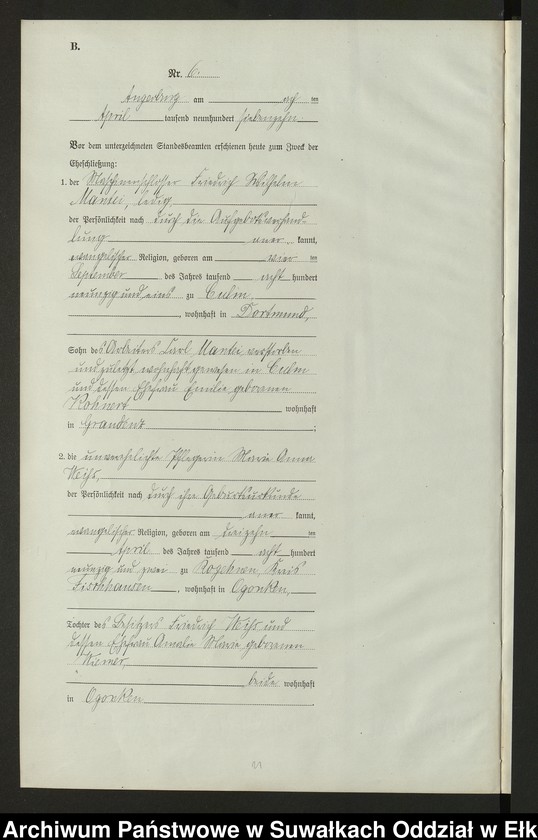 B.
Nr. 6.
Angerburg am acht ten
April tausend neunhundert siebenzehn
Vor dem unterzeichneten Standesbeamten erschienen heute zum Zweck der
Eheschließung:
1. der Maschinenschlosser Friedrich Wilhelm
Mantei, ledig,
der Persönlichkeit nach durch die Aufgebotsverhand
lung aner kannt,
evangelischer Religion, geboren am vier ten
September des Jahres tausend acht hundert
neunzig und eins zu Culm,
, wohnhaft in Dortmund,
Sohn des Arbeiters Carl Mantei verstorben
und zuletzt wohnhaft gewesen in Culm
und dessen Ehefrau Emilie geborenen
Kohnert wohnhaft
in Graudenz ;
2. die unverehelichte Pflegerin Marie Anna
Weihs,
der Persönlichkeit nach durch ihre Geburtsurkunde
aner kannt,
evangelischer Religion, geboren am dreizehn ten
April des Jahres tausend acht hundert
neunzig und zwei zu Rogehnen, Kreis
Fischhausen , wohnhaft in Ogonken,
Tochter des Besitzers Friedrich Weihs und
dessen Ehefrau Amalie Marie geborenen
beide wohnhaft
in Ogonken .
21
Archiwum Państwowe w Suwałkach Oddział w Ełk